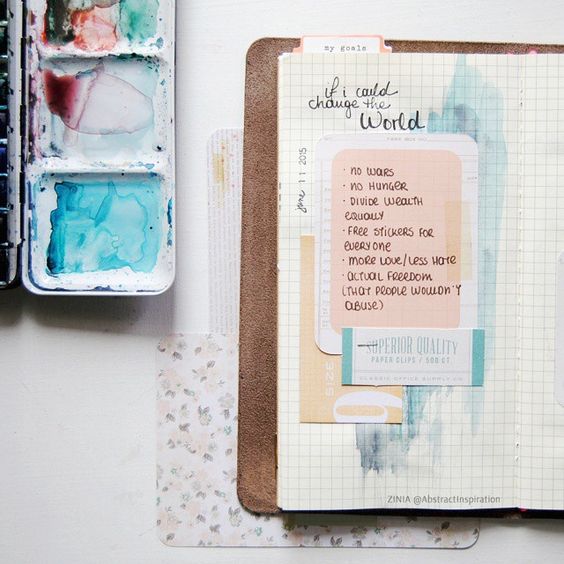 my goals
if i could
change the
World
june 11 2015
• NO WARS
• NO HUNGER
• DIVIDE WEALTH
EQUALLY
• FREE STICKERS FOR
EVERYONE
• MORE LOVE/LESS HATE
• ACTUAL FREEDOM
(THAT PEOPLE WOULDN'T
ABUSE)
SUPERIOR QUALITY
PAPER CLIPS / 500 CT.
CLASSIC OFFICE SUPPLY CO
SIZE
ZINIA @AbstractInspiration